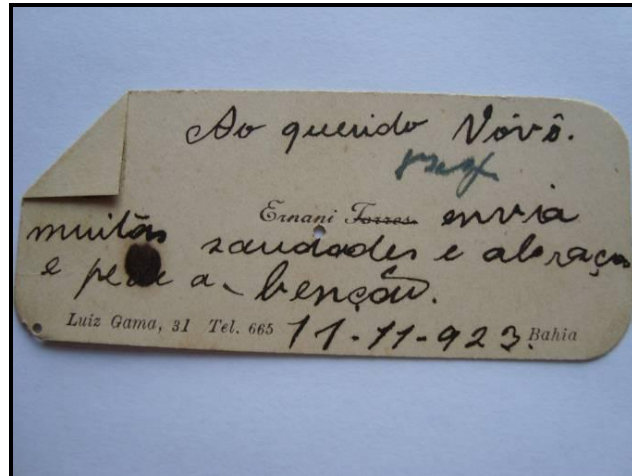 Ao querido Vóvô.
Ernani Torres envia
muitas saudades e abraços
e pede a benção.
Luiz Gama, 31 Tel. 665 11-11-923. Bahia